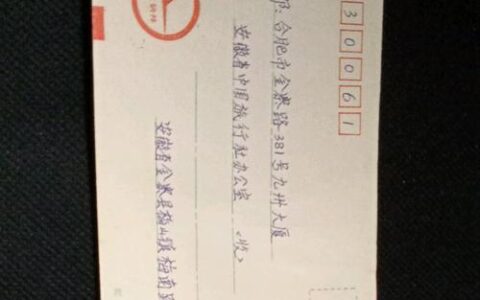 30061
合肥市金寨路381号九州大厦
安徽省中国旅行社办公室 <收>
安徽省金寨县梅山镇梅南